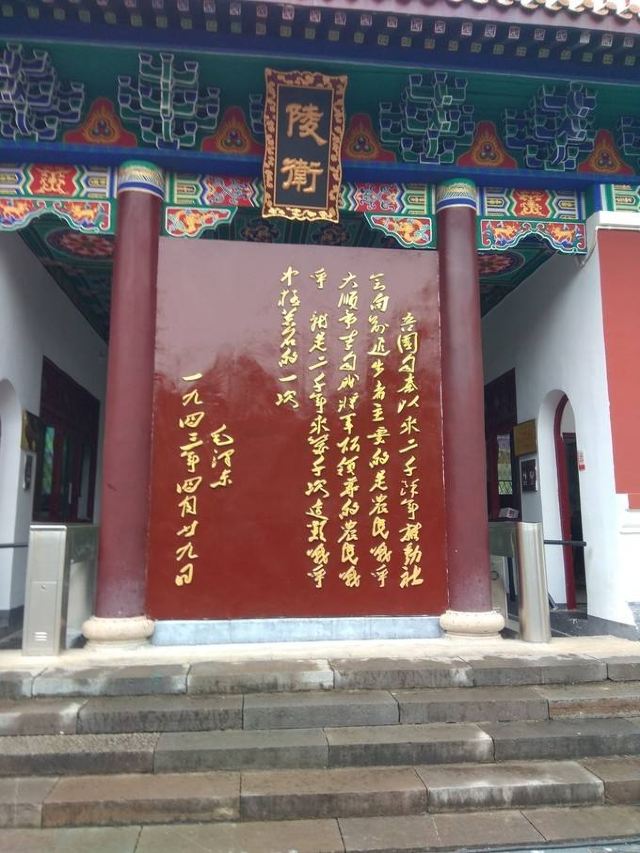 陵衛
吾國自秦以来二千餘年推動社
会向前進步者主要的是農民戰爭
大順帝李自成将軍所領導的農民戰
爭就是二千年来幾十次這類戰爭
中極著名的一次
毛澤东
一九四三年四月廿九日